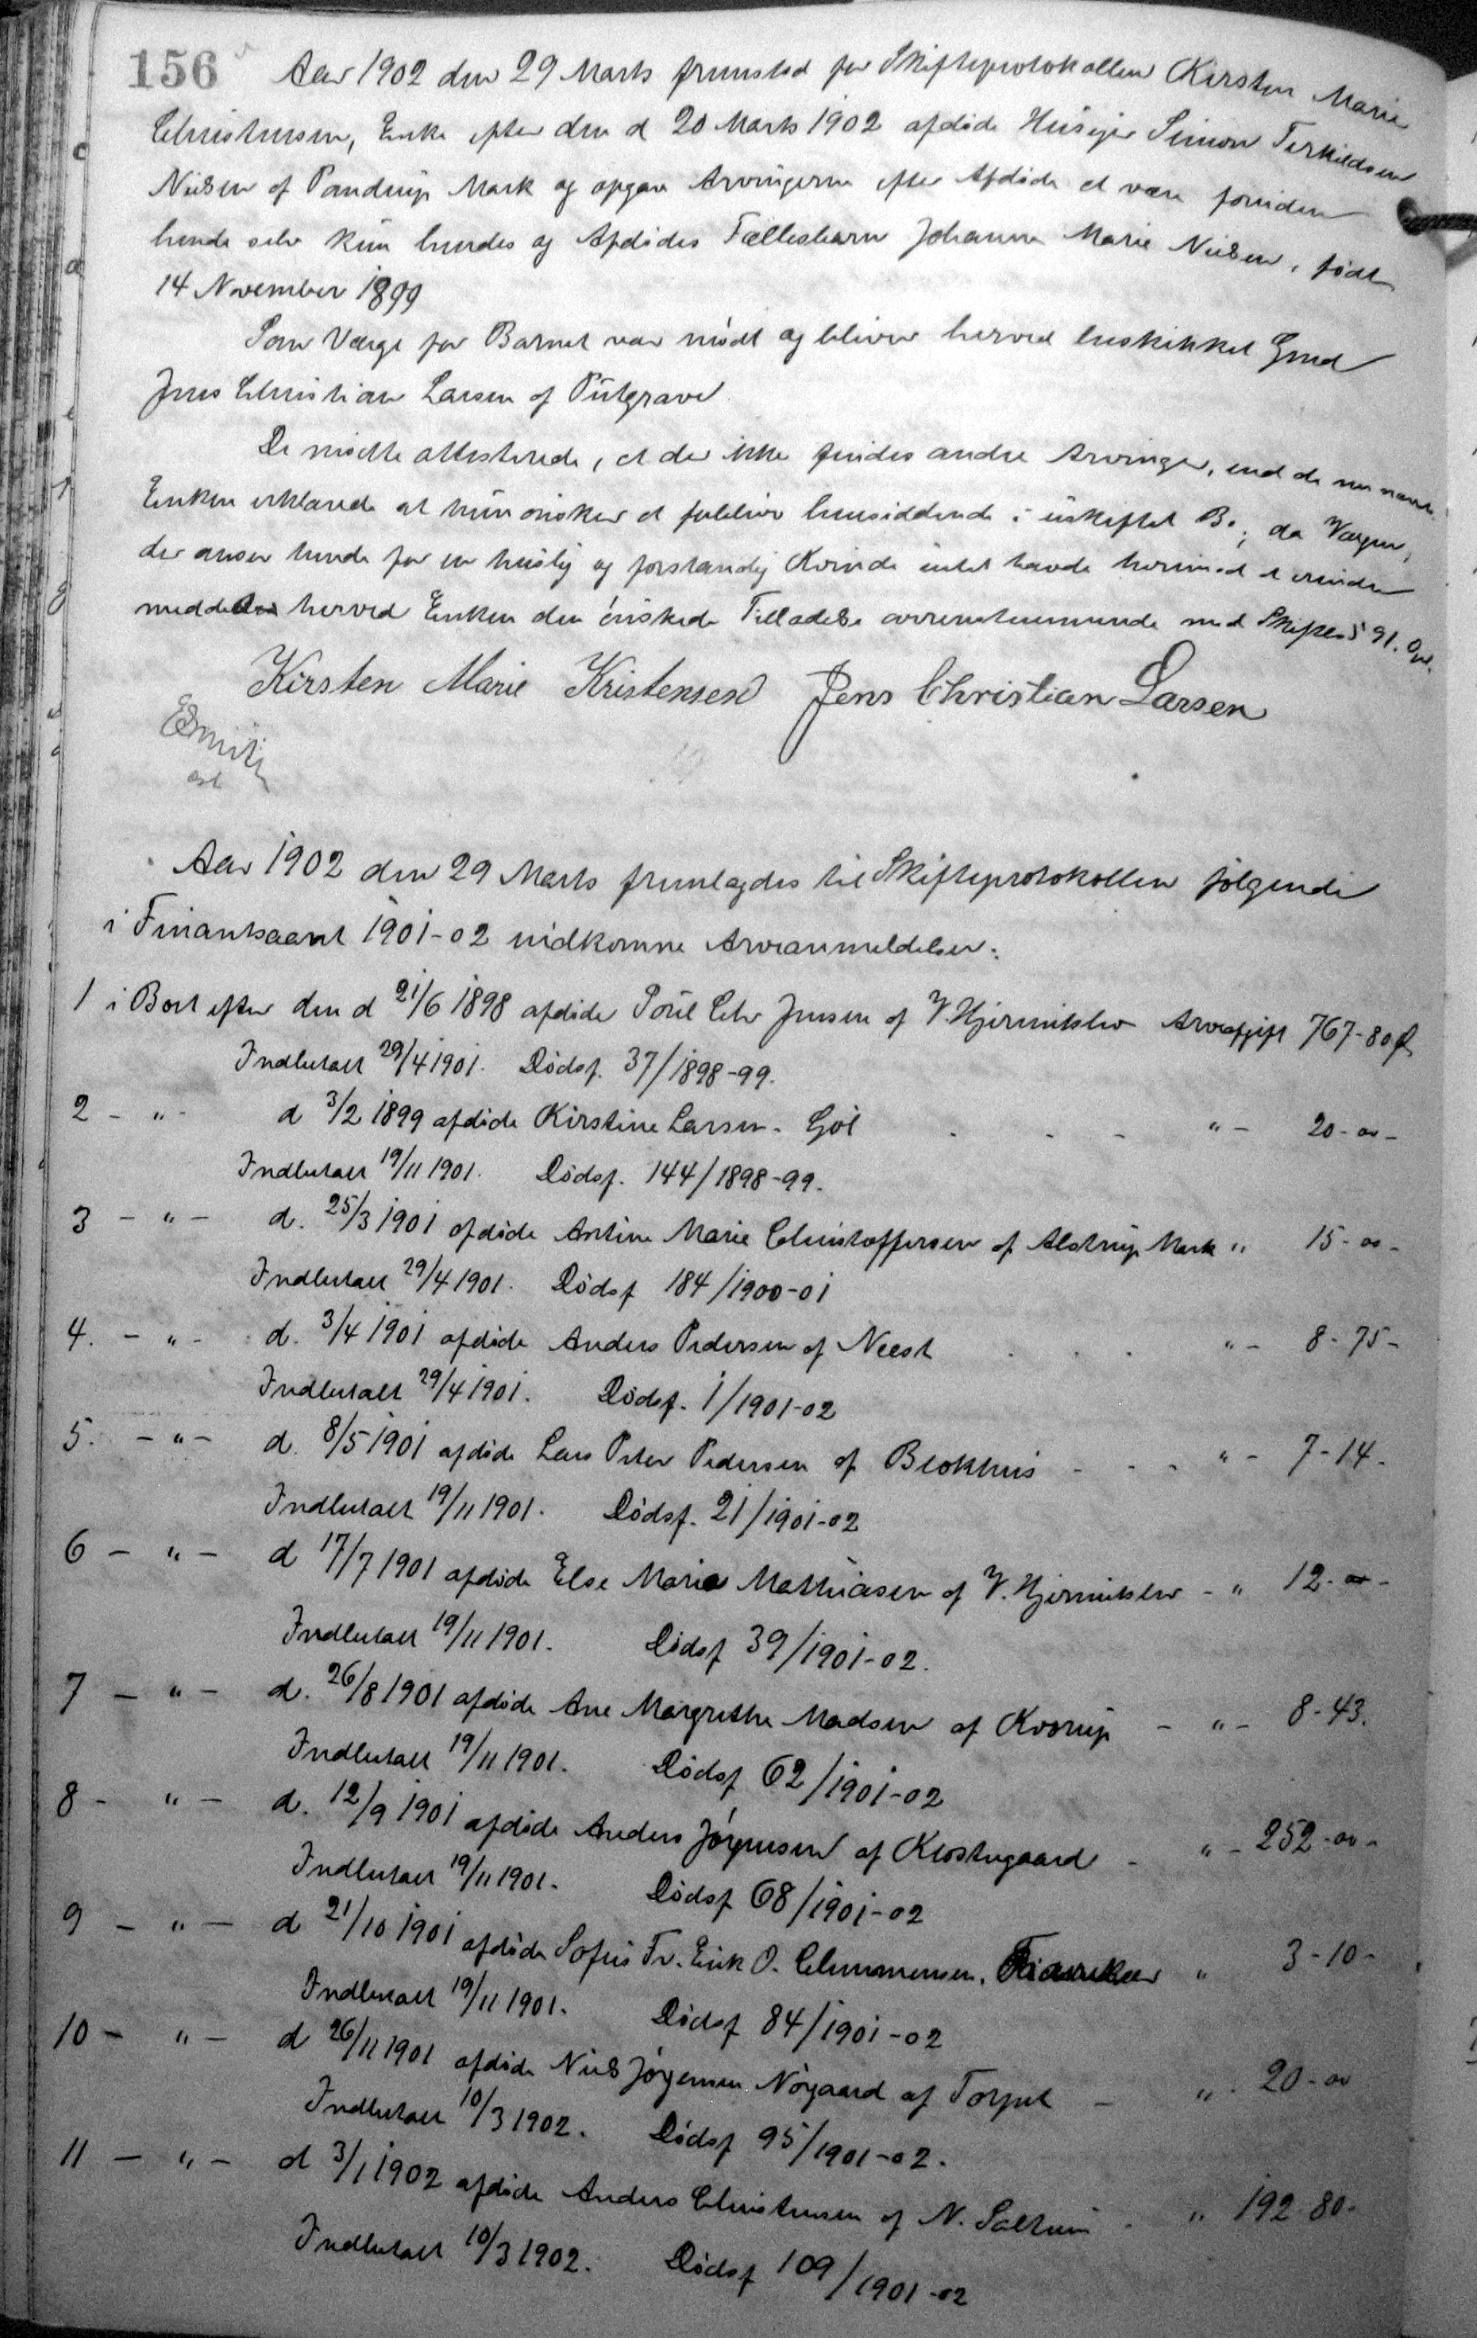 156 Aar 1902 den 29 Marts fremstod for Skifteprotokollen Kirsten Marie
Christensen, Enke efter den d 20 Marts 1902 afdøde Husejer Simon Terkildsen
Nielsen af Pandrup Mark og opgav Arvingerne efter Afdøde at være foruden
hende selv kun hendes og Afdødes Fællesbarn Johanne Marie Nielsen, født
14 November 1899
Som Værge for Barnet var mødt og bliver herved beskikket Gmd
Jens Christian Larsen af Pulgrave
De mødte attesterede, at der ikke findes andre Arvinger, end de nu nævnte
Enken erklærede at hun ønsker at forblive hensiddende i uskiftet Bo; da Værgen,
der anser hende for en huslig og forstandig Kvinde intet havde herimod at erindre
meddeltes herved Enken den ønskede Tilladelse overensstemmende med Skiftel § 91. Opl.
Kirsten Marie Kristensen Jens Christian Larsen
Smith
cst
Aar 1902 den 29 Marts fremlagdes til Skifteprotokollen følgende
i Finantsaaret 1901-02 indkomne Arveanmeldelser:
1 i Boet efter den d 21/6 1898 afdøde Poul Chr Jensen af V. Hjermitslev Arveafgift 767-80 Ø
Indbetalt 29/4 1901. Dødsf. 37/1898-99.
2 - " - d 3/2 1899 afdøde Kirstine Larsen - Gøl - - - " - 20-00-
Indbetalt 19/11 1901. Dødsf. 144/1898-99.
3 - " - d. 25/3 1901 afdøde Antine Marie Christoffersen af Alstrup Mark " 15-00-
Indbetalt 29/4 1901. Dødsf 184/1900-01
4. - " - d. 3/4 1901 afdøde Anders Pedersen af Neest . . . " - 8-75-
Indbetalt 29/4 1901. Dødsf. 1/1901-02
5. - " - d. 8/5 1901 afdøde Lars Peter Pedersen af Blokhus - - - " - 7-14-
Indbetalt 19/11 1901. Dødsf. 21/1901-02
6 - " - d 17/7 1901 afdøde Else Marie Mathiasen af V. Hjermitslev - " 12-00-
Indbetalt 19/11 1901. Dødsf 39/1901-02.
7 - " - d. 26/8 1901 afdøde Ane Margrethe Madsen af Kvorup - " - 8-43.
Indbetalt 19/11 1901. Dødsf 62/1901-02
8 - " - d. 12/9 1901 afdøde Anders Jørgensen af Klostergaard - " - 252-00-
Indbetalt 19/11 1901. Dødsf 68/1901-02
9 - " - d 21/10 1901 afdøde Sofus Fr. Erik O. Clemmensen, " 3-10-
Indbetalt 19/11 1901. Dødsf 84/1901-02
10 - " - d 26/11 1901 afdøde Niels Jørgensen Nørgaard af Torpet - " - 20-00
Indbetalt 10/3 1902. Dødsf 95/1901-02.
11 - " - d 3/1 1902 afdøde Anders Christensen af N. Saltum - " 192-80-
Indbetalt 10/3 1902. Dødsf 109/1901-02